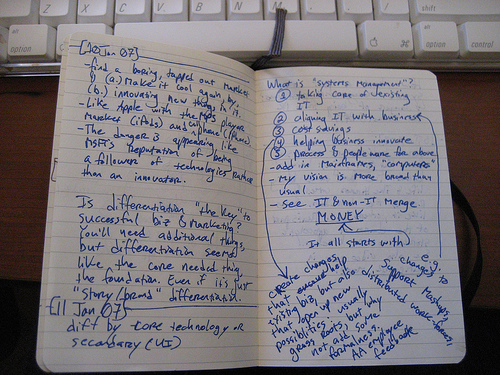 Z X C V B N M
shift
alt
option
⌘
alt
option
control
[10 Jan 07]
- find a boring, tapped out market
1) (a.) Make it cool again by,
(b.) innovating new things in it.
- Like Apple with the mp3 player
Market (iPods) and cell phone (iPhone)
- The danger is appearing like
MSFT's Reputation of being
a follower of technologies rather
than an innovator.
Is differentiation "the key" to
successful biz & marketing?
You'll need additional things,
but differentiation seems
like the core needed thing,
the foundation. Even if it's just
"Story/brand" differentiation.
[11 Jan 07]
diff by core technology or
secondary (UI)
What is "systems management"?
① taking care of existing
IT
② aligning IT with business
③ cost savings
④ helping business innovate
⑤ process & people more than above
- add in Mainframes, "computers"
- My vision is more broad than
usual.
- see IT & non-IT merge.
MONEY
It all starts with
create changes
that help
existing biz, but also
that open up new
possibilities: usually
grass roots, but why
not add some
formalness.
employee
feedback
e.g.
changes to
support mashups,
distributed work-forces,